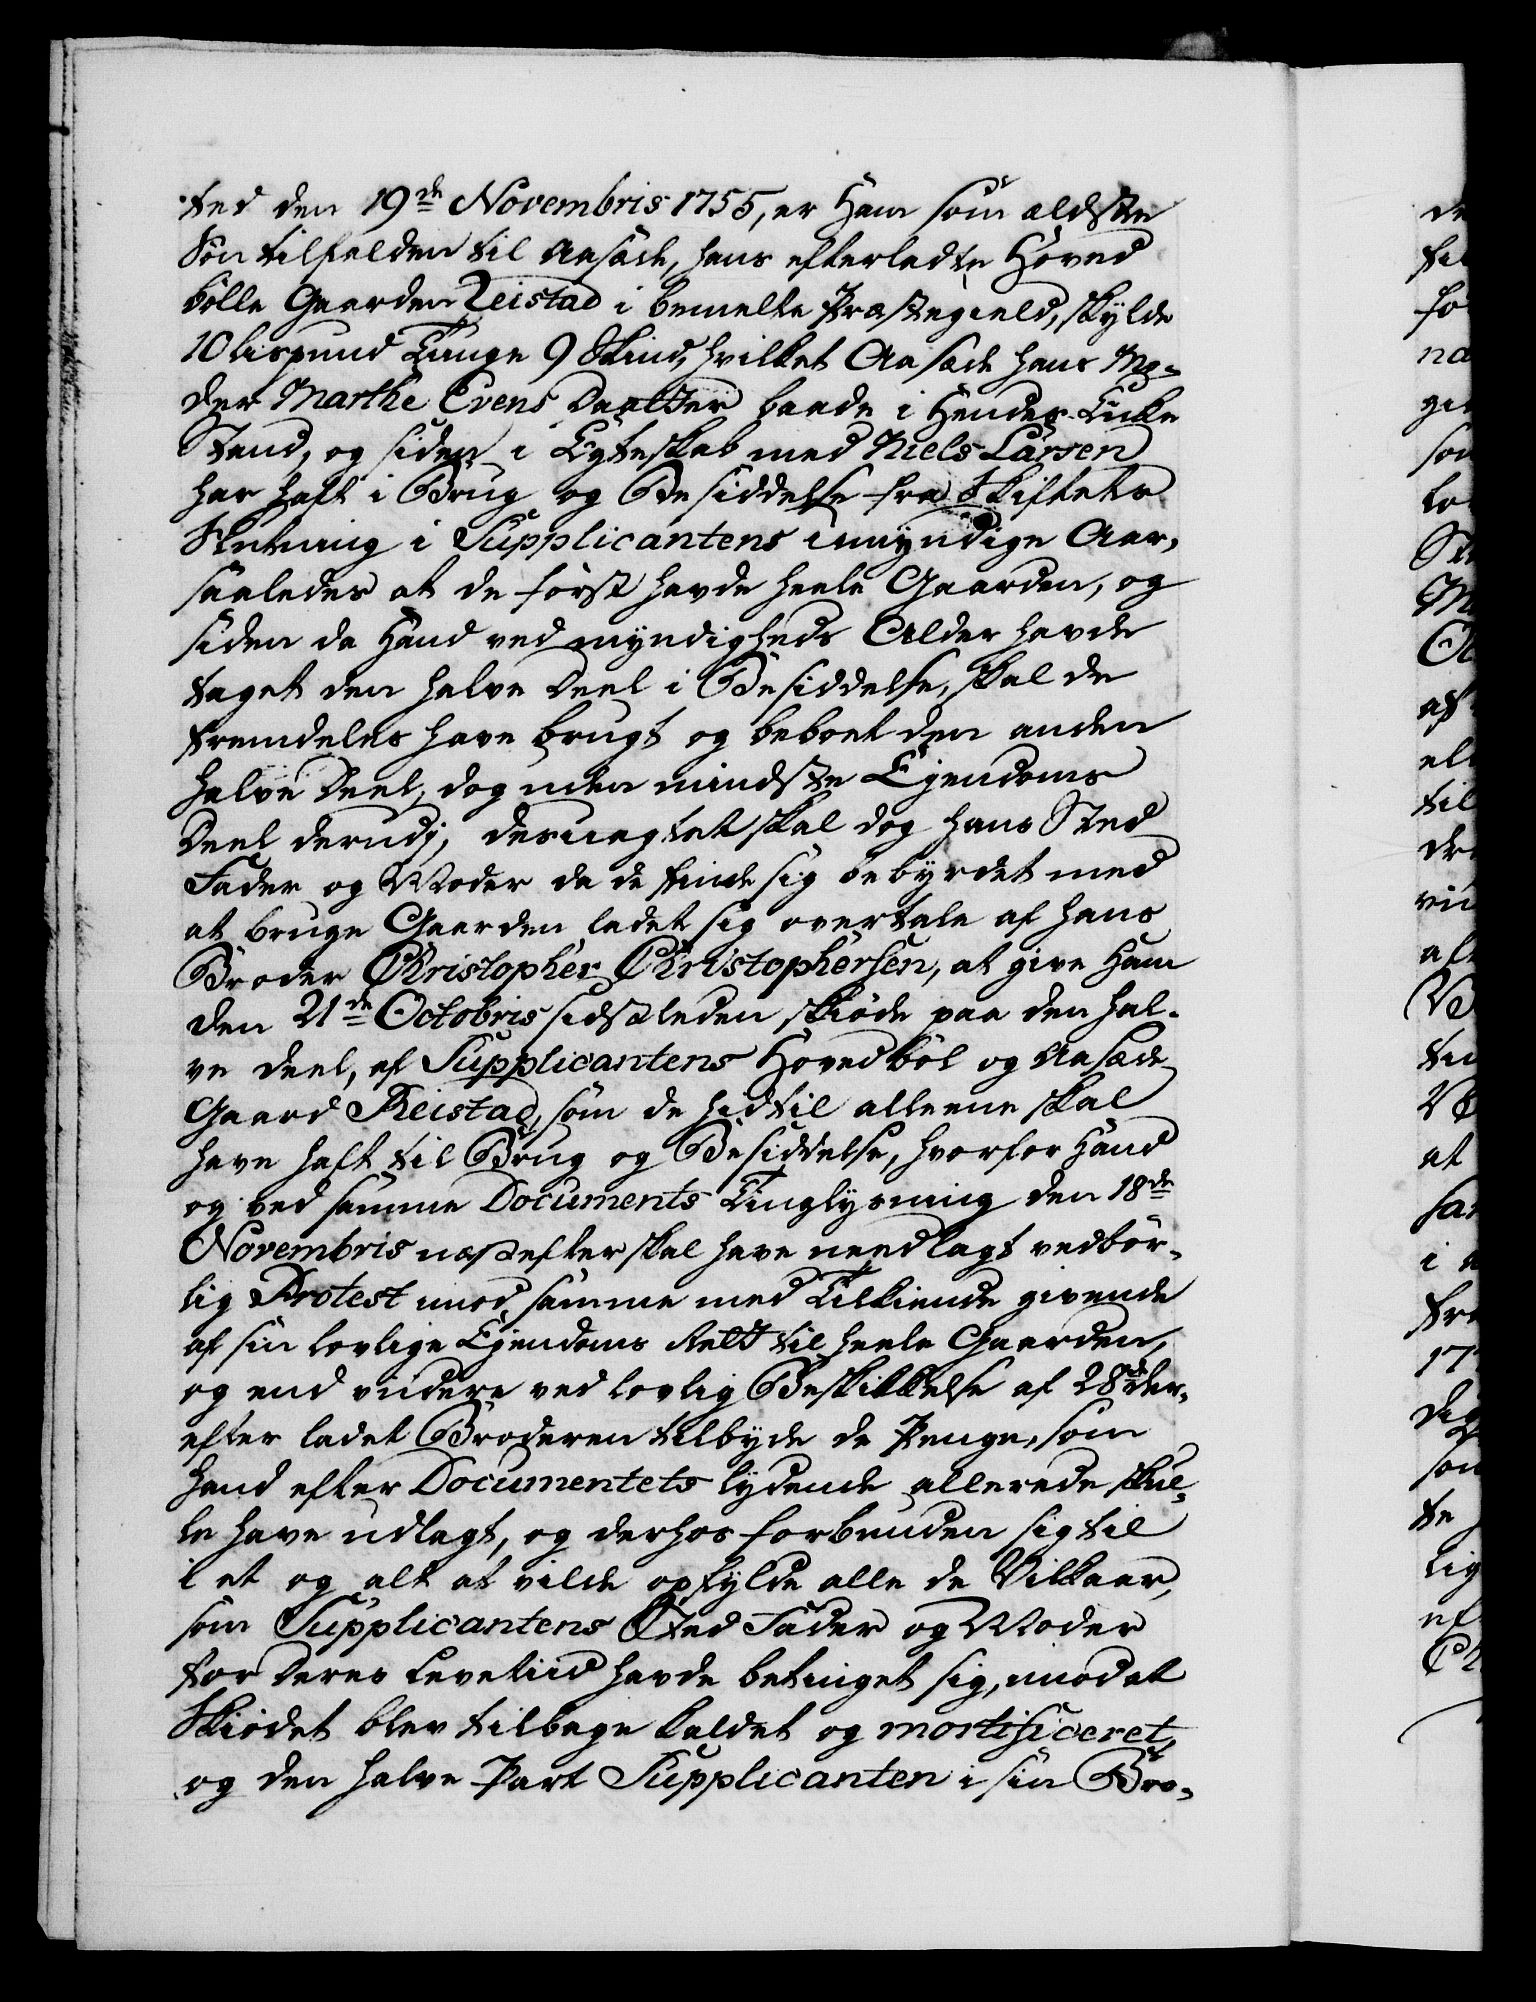 ted den 19de Novembris 1755, er Ham som ældste
Søn tilfalden til Aasæde, hans efterladte Hoved
bølle Gaarden Reistad i bemelte Præstegield, skylde
10 lispund Tunge 9 Skind, hvilket Aasæde hans Mo-
der Marthe Evens Daatter baade i Hendes Enke
Stand, og siden i Egteskab med Niels Larsen
har haft i Brug og Besiddelse fra Skiftets
Slutning i Supplicantens umyndige Aar,
saaledes at de først havde heele Gaarden, og
siden da Hand ved myndigheds Alder havde
taget den halve Deel i Besiddelse, skal de
fremdeles have brugt og beboet den anden
halve Deel, dog uden mindste Ejendoms
Deel derudj; desuagtet skal dog hans Sted
Fader og Moder da de finde sig bebyrdet med
at bruge Gaarden ladet sig overtale af hans
Broder Christopher Christophersen, at give Ham
den 21de Octobris sidstleden skiøde paa den hal-
ve deel, af Supplicantens Hovedbøl og Aasæde
Gaard Reistad, som de hidtil alleene skal
have haft til Brug og Besiddelse, hvorfor Hand
og ved samme Documents Tinglysning den 18de
Novembris næst efter skal have needlagt vedbør-
lig Protest imod samme med Tilkiende givende
af sin lovlige Ejendoms Rett til heele Gaarden,
og end videre ved lovlig Beskikkelse af 28de der-
efter ladet Broderen tilbyde de Penge, som
Hand efter Documentets lydende allerede skul-
le have udlagt, og derhos forbunden sig til
i et og alt at vilde opfylde alle de Vilkaar,
som Supplicantens Sted Fader og Moder
for Deres Levetiid havde betinget sig, imod at
Skiødet blev tilbage kaldet og mortificeret,
og den halve Part Supplicanten i sin Bro-